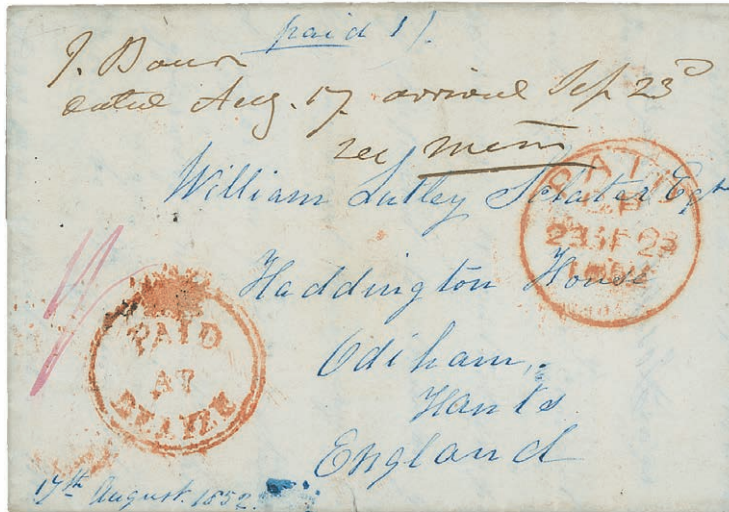 paid 1/
J. Bourn
dated Aug. 17. arrived Sep 23d
see mem
William Lutley Sclater Esqre
PAID
23 SE 23
Haddington House
PAID
AT
BELIZE
Odiham,
Hants
England
17th August. 1852.